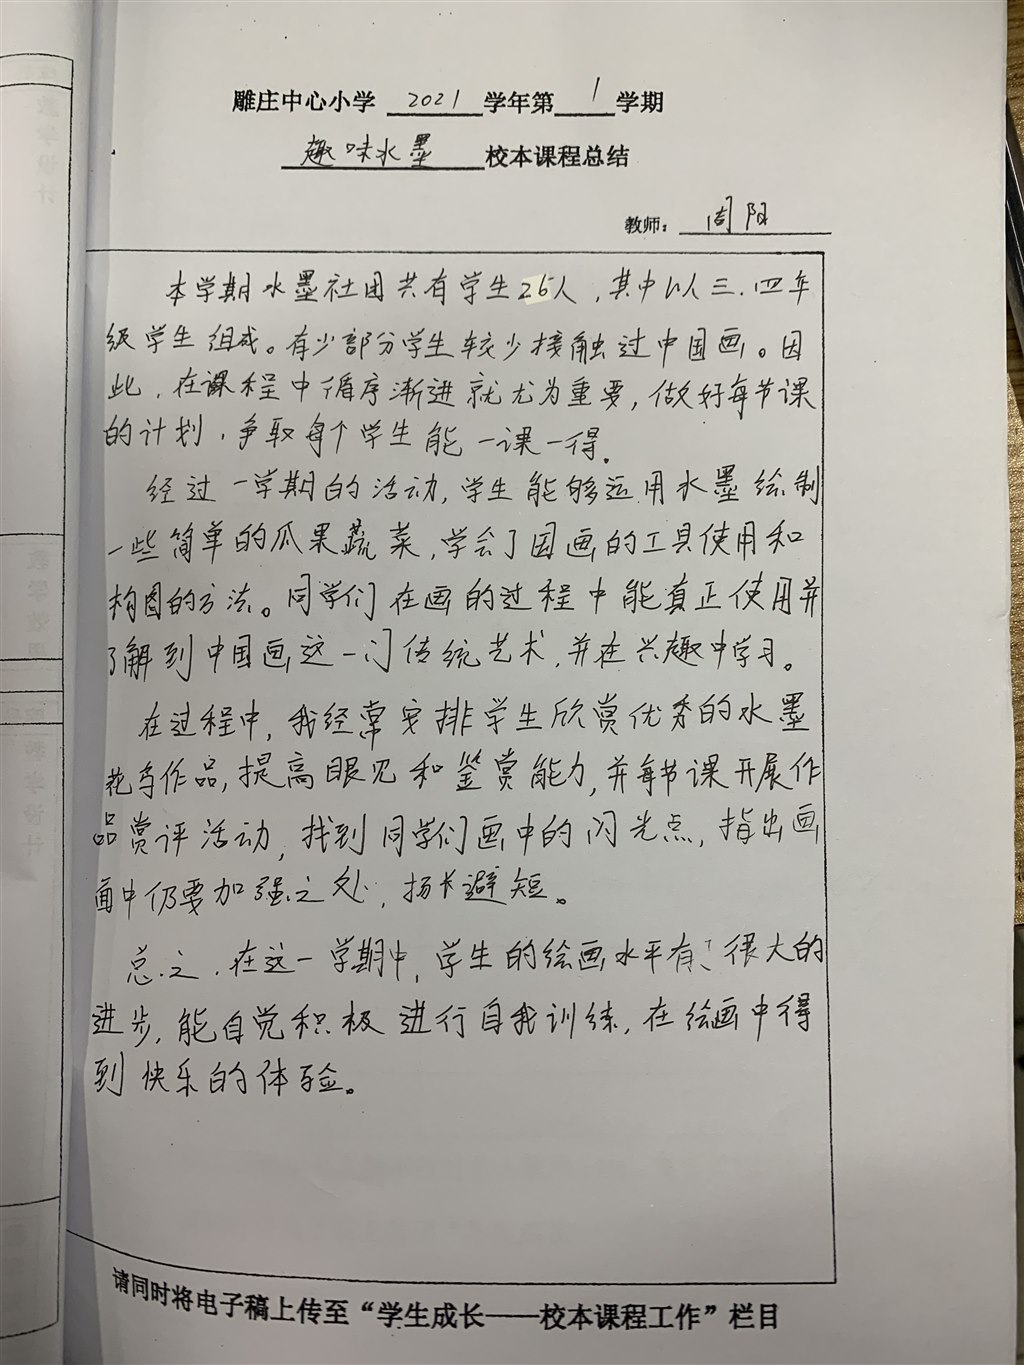 雕庄中心小学 2021 学年第 1 学期
趣味水墨 校本课程总结
教师: 周阳
本学期水墨社团共有学生26人，其中以三.四年
级学生组成。有少部分学生较少接触过中国画。因
此，在课程中循序渐进就尤为重要，做好每节课
的计划，争取每个学生能一课一得。
经过一学期的活动，学生能够运用水墨绘制
一些简单的瓜果蔬菜，学会了国画的工具使用和
构图的方法。同学们在画的过程中能真正使用并
了解到中国画这一门传统艺术，并在兴趣中学习。
在过程中，我经常安排学生欣赏优秀的水墨
花鸟作品，提高眼见和鉴赏能力，并每节课开展作
品赏评活动，找到同学们画中的闪光点，指出画
面中仍要加强之处，扬长避短。
总之，在这一学期中，学生的绘画水平有了很大的
进步，能自觉积极进行自我训练，在绘画中得
到快乐的体验。
请同时将电子稿上传至“学生成长——校本课程工作”栏目